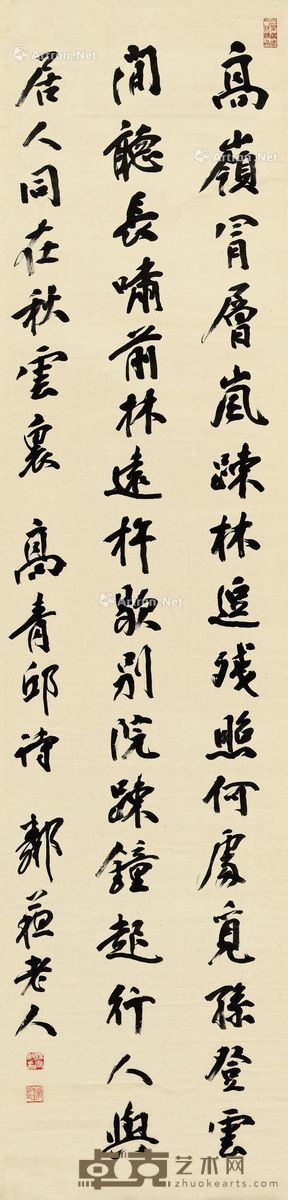 高嶺冒層嵐疎林逗殘照何處覓孫登雲
間聽長嘯前林遠杵歇別院疎鐘起行人與
居人同在秋雲裏 高青邱詩 鄰蘇老人
Artron.Net
Artron.Net
Artron.Net
Artron.Net
Artron.Net
卓克艺术网
www.zhuokearts.com